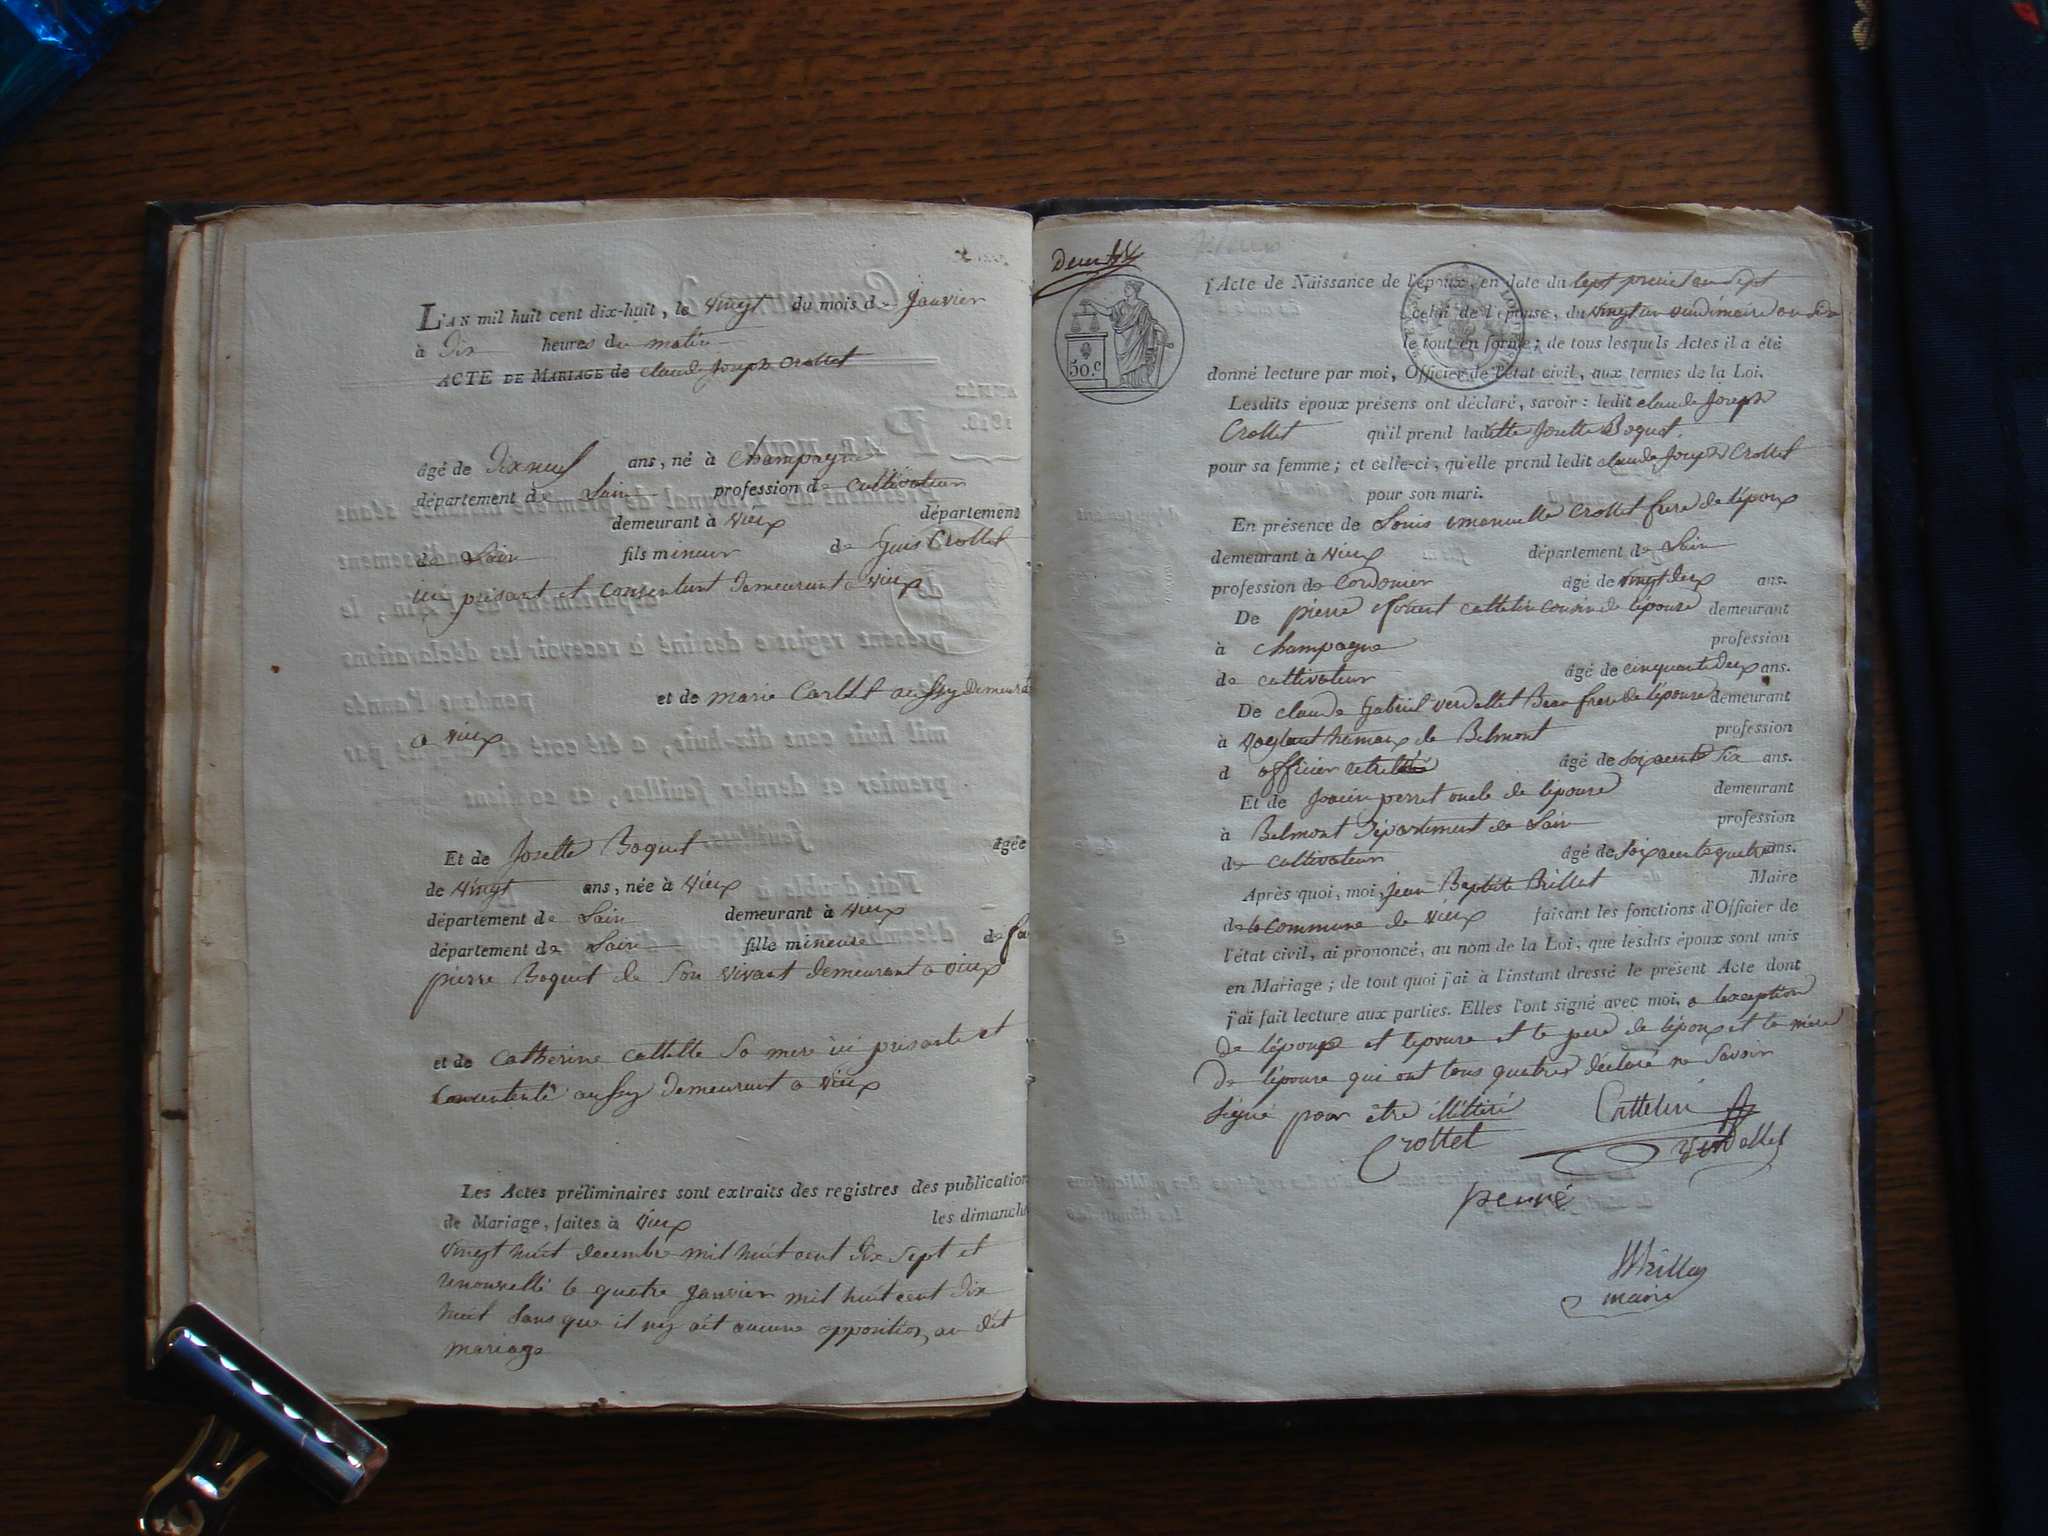 L'AN mil huit cent dix-huit, le vingt du mois de Janvier
à Dix heures du matin
ACTE DE MARIAGE de claude Joseph Crottet
âgé de Dixneuf ans, né à Champagne
département de Lain profession de Cultivateur
demeurant à vieux département
de Lain fils mineur de Crottet
ici présant et consentant demeurant a vieux
et de marie aussy demeurá
a vieux
Et de Josette Boquet âgée
de vingt ans, née à vieux
département de Lain demeurant à vieux
département de Lain fille mineure de fa
pierre Boquet de Son vivant demeurant a vieux
et de Catherine Cattette Sa mere ici presante et
Consentente aussy demeurant a vieux
Les Actes préliminaires sont extraits des registres des publication
de Mariage, faites à vieux les dimanche
vingt huit decembre mil huit cent dix Sept et
renouvellé le quatre Janvier mil huit cent dix
huit Sans que il n'ÿ ait aucune opposition au dit
mariage
l'Acte de Naissance de l'époux, en date du Sept an Sept
celui de l'épouse, du vingt un vendémiaire an Six
le tout en forme; de tous lesquels Actes il a été
50.c
donné lecture par moi, Officier de l'état civil, aux termes de la Loi.
Lesdits époux présens ont déclaré, savoir: ledit claude Joseph
Crottet qu'il prend ladite Josette Boquet
pour sa femme; et celle-ci, qu'elle prend ledit claude Joseph Crottet
pour son mari.
En présence de Louis emanuelle Crottet frere de lépoux
demeurant à vieux département de Lain
profession de Cordonier âgé de vingt deux ans.
De pierre cattelin cousin de lépouse demeurant
à Champagne profession
de cultivateur âgé de cinquante deux ans.
De claude Gabriel verdallet Beau frere de lépouse demeurant
à de Belmont profession
d officier retraité âgé de Soixcente Six ans.
Et de perret oncle de lépouse demeurant
à Belmont Département de Lain profession
de cultivateur âgé de Soixcente quatre ans.
Après quoi, moi, Jean Baptiste Brillat Maire
de la commune de vieux faisant les fonctions d'Officier de
l'état civil, ai prononcé, au nom de la Loi, que lesdits époux sont unis
en Mariage; de tout quoi j'ai à l'instant dressé le présent Acte dont
j'ai fait lecture aux parties. Elles l'ont signé avec moi, a lexception
de lépoux et lepouse et le pere de lépoux et la mère
De lépouse qui ont tous quatres déclaré ne Savoir
Signé pour être illitéré Cattelin
Crottet verdallet
perret
Brillat
maire